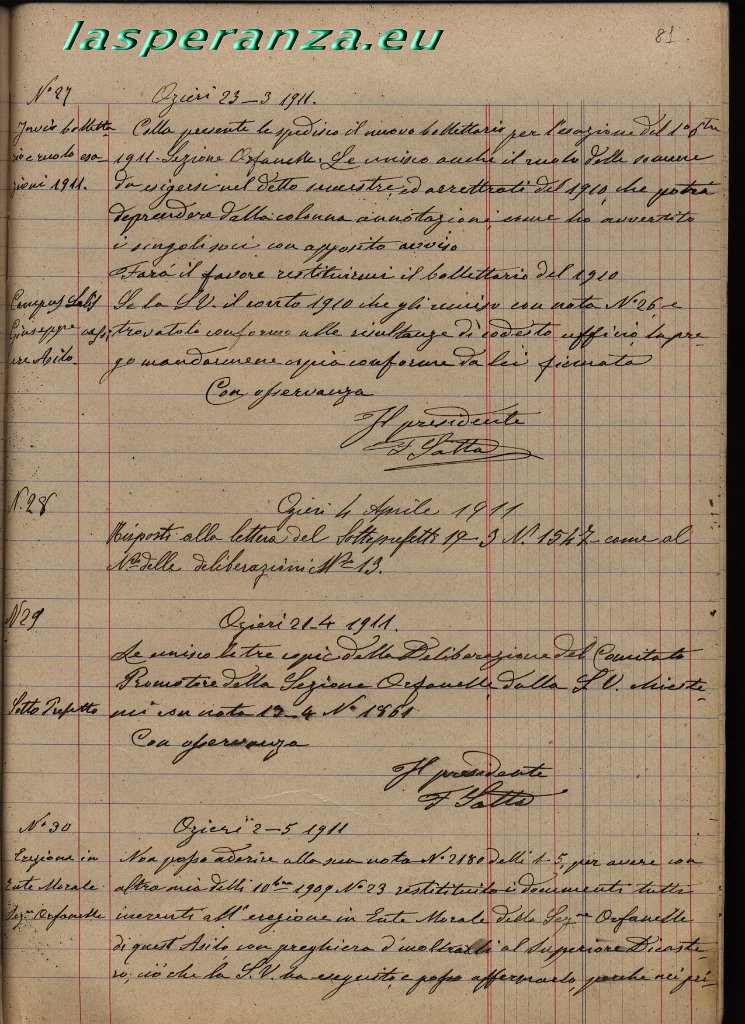 lasperanza.eu
81
N° 27 Ozieri 23-3 1911.
Invio bolletta-
rio e ruolo esa-
zioni 1911.
Colla presente le spedisco il nuovo bollettario per l'esazione del 1°
1911. Sezione Orfanelle. Le unisco anche il ruolo delle somme
da esigersi nel detto semestre, ed arrettrati del 1910, che potrà
deprendere dalla colonna annotazioni, come ho avvertito
i singoli soci con apposito avviso
Farà il favore restituirmi il bollettario del 1910
Campus
Giuseppe cassi-
ere Asilo.
Se la S.V. il conto 1910 che gli unisco con nota N° 26, e
trovatolo conforme alle risultanze di codesto ufficio, la pre-
go mandarmene copia conforme da lei firmata
Con osservanza
Il presidente
F Satta
N. 28 Ozieri 4 Aprile 1911
Risposti alla lettera del Sottoprefetti 19-3 N. 1547 come al
N.ro delle deliberazioni 13.
N 29 Ozieri 21-4 1911.
Sotto Prefetto
Le unisco le tre copie della Deliberazione del Comitato
Promotore della Sezione Orfanelle dalla S.V.
con nota 13-4 N° 1861
Con osservanza
Il presidente
F Satta
N° 30 Ozieri 2-5 1911
Erezione in
Ente Morale
Sez.ne Orfanelle
Non posso aderire alla sua nota N° 2180 delli 1-5, per avere con
altra mia delli 10bre 1909 N° 23 restituito i documenti tutti
inerenti all'erezione in Ente Morale della Sez.ne Orfanelle
di quest'Asilo con preghiera d'inoltrarli al Superiore Dicaste-
ro; ciò che la S.V. ha eseguito, e posso affermarlo, perchè nei pri-